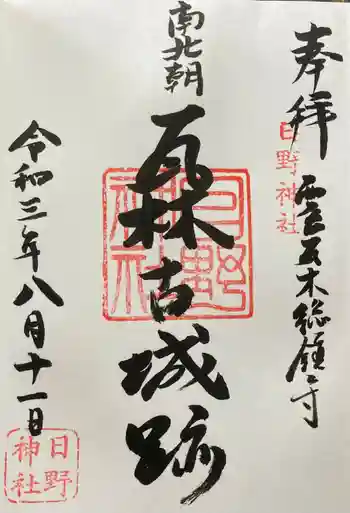 奉拝
日野神社
瓦木総鎮守
南北朝
瓦林古城跡
日野神社
令和三年八月十一日
日野神社